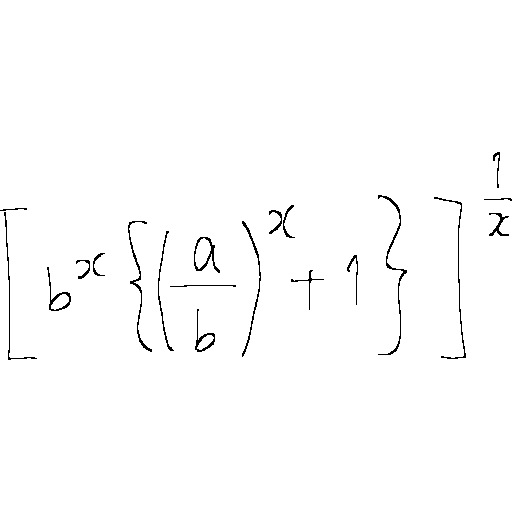 \left[ b^x \left\{ \left( \frac{a}{b} \right)^x + 1 \right\} \right]^{\frac{1}{x}}